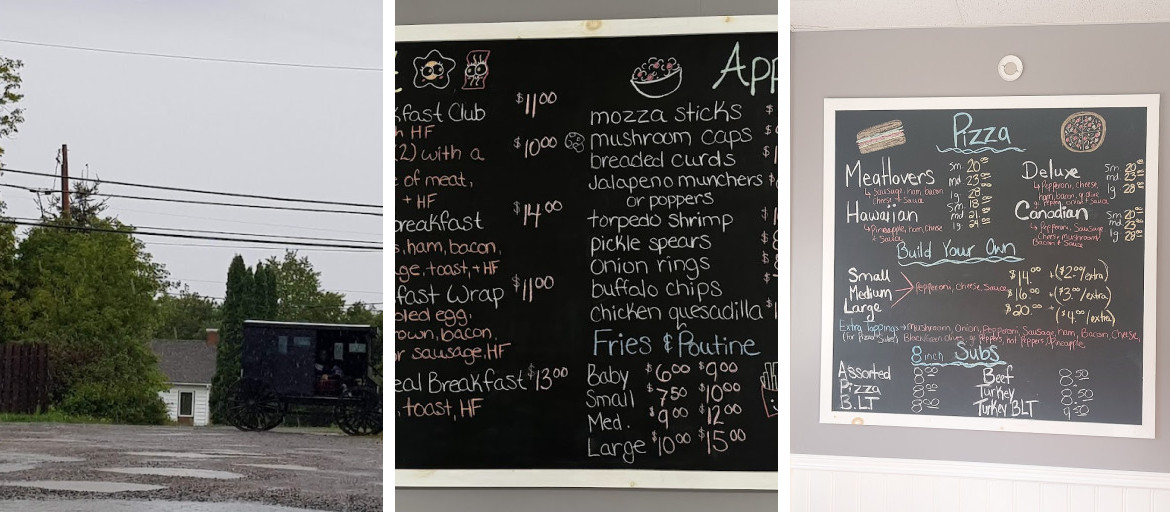 App
kfast Club $11.00
h HF
(2) with a $10.00
e of meat,
+ HF
breakfast $14.00
s, ham, bacon,
ge, toast, + HF
kfast Wrap $11.00
bled egg,
own, bacon,
r sausage, HF
eal Breakfast $13.00
, toast, HF
mozza sticks $
mushroom caps $
breaded curds
Jalapeno munchers $
or poppers
torpedo shrimp
pickle spears
Onion rings
buffalo chips
chicken quesadilla $
Fries & Poutine
Baby $6.00 $9.00
Small $7.50 $10.00
Med. $9.00 $12.00
Large $10.00 $15.00
Pizza
Meatlovers sm. 20.00
md 23.00
lg 28.00
↳ Sausage, ham, bacon
Cheese + Sauce
Hawaiian sm. 18
md 21
lg 24.00
↳ Pineapple, ham, cheese
+ Sauce
Deluxe sm 20.00
md 23
lg 28.00
↳ Pepperoni, cheese,
ham, bacon,
Canadian sm 20
md 23
lg 28.00
↳ Pepperoni, Sausage
Cheese + mushroom
Bacon & Sauce
Build Your Own
Small $14.00 + ($2.00/extra)
Medium Pepperoni, Cheese, Sauce $16.00 + ($3.00/extra)
Large $20.00 + ($4.00/extra)
Extra toppings → mushroom, Onion, Pepperoni, Sausage, ham, Bacon, Cheese,
(for Pizza/Subs!) Black/Green olives, g. peppers, hot peppers, Pineapple
8 inch Subs
Assorted 8.00
Pizza 8.00
B.L.T 8.00
Beef 8.50
Turkey 8.50
Turkey BLT 9.50